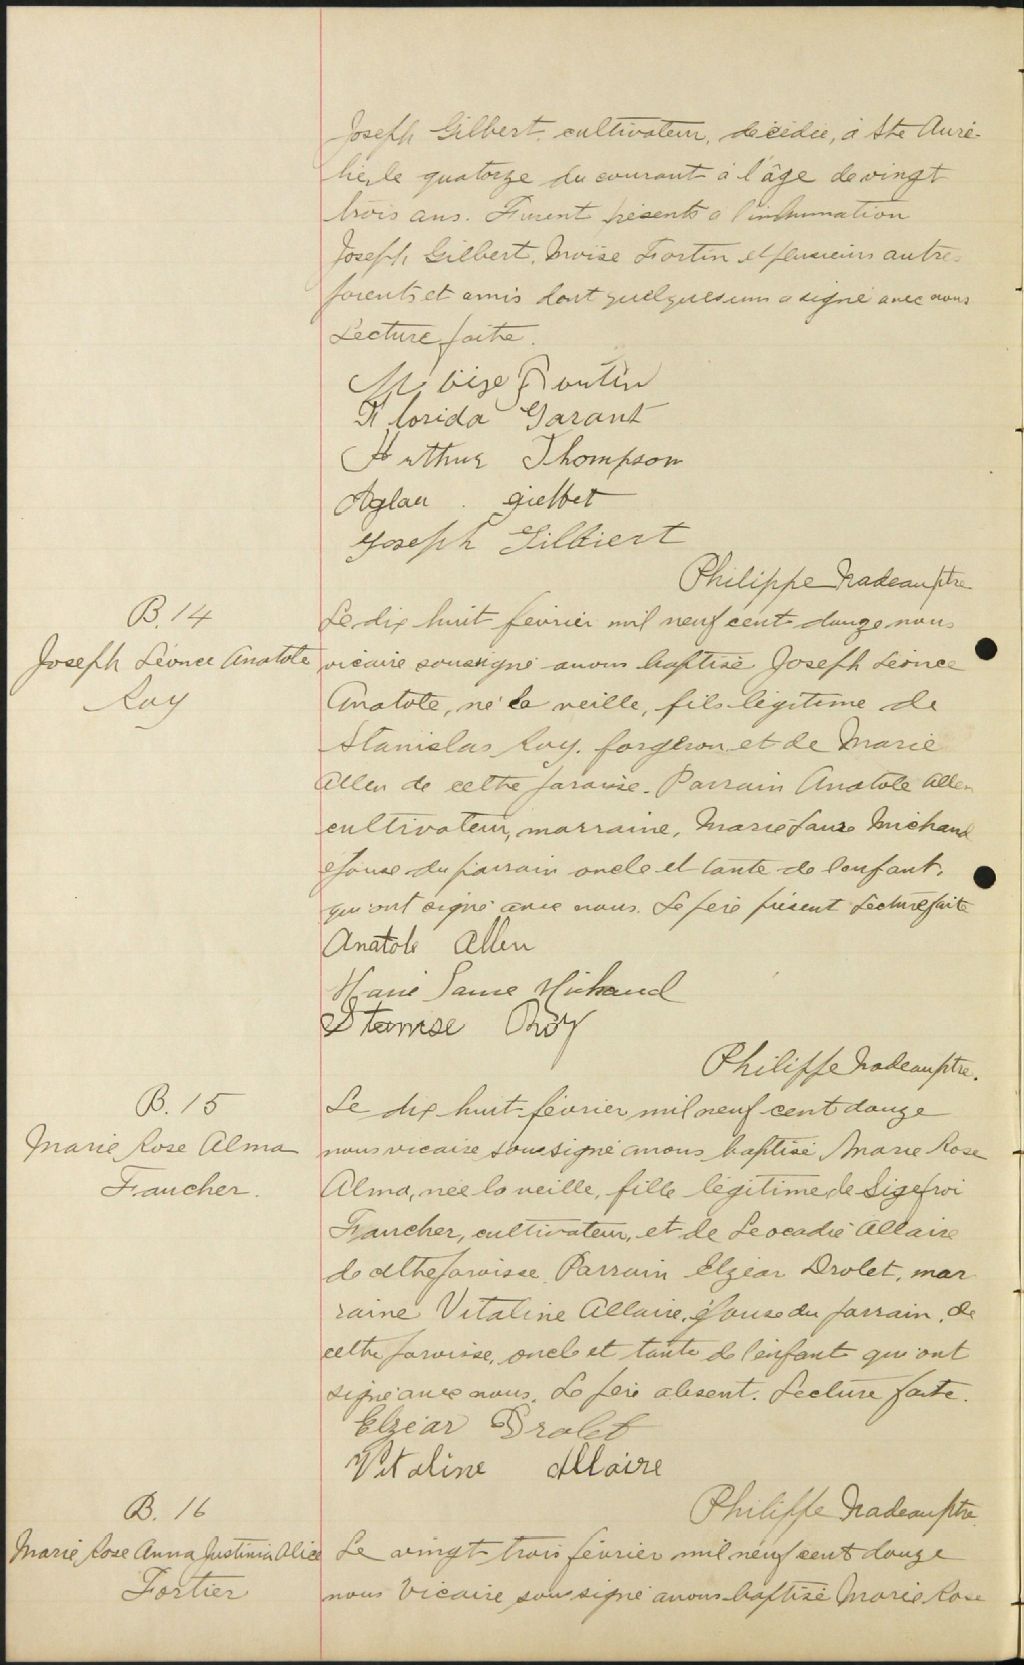 Joseph Gilbert, cultivateur, décédée, à Ste Auré-
lie, le quatorze du courant à l'âge de vingt
trois ans. Furent présents a l'inhumation
Joseph Gilbert, Moïse Fortin et plusieurs autres
parents et amis dont quelquesuns a signé avec nous
Lecture faite.
Moïse Foutin
Florida Garant
Arthur Thompson
Aglaé gielbet
Joseph Gilbiert
Philippe Nadeau ptre
B. 14
Joseph Léonce Anatole
Roy
Le dix huit février mil neuf cent douze nous
vicaire soussigné avons baptisé Joseph Léonce
Anatole, né la veille, fils légitime de
Stanislas Roy, forgeron et de Marie
Allen de cette paroisse. Parrain Anatole Allen
cultivateur, marraine, Marie Laure Michaud
épouse du parrain oncle et tante de l'enfant,
qui ont signé avec nous. Le père présent Lecture faite
Anatole Allen
Marie Laure Michaud
Roy
Philippe Nadeau ptre.
B. 15
Marie Rose Alma
Faucher.
Le dix huit février mil neuf cent douze
nous vicaire soussigné avons baptisé Marie Rose
Alma, née la veille, fille légitime de Sigefroi
Faucher, cultivateur, et de Léocadie Allaire
de cette paroisse. Parrain Elzéar Drolet, mar
raine Vitaline Allaire, épouse du parrain, de
cette paroisse, oncle et tante de l'enfant qui ont
signé avec nous. Le père absent. Lecture faite.
Elzéar Drolet
Vitaline Allaire
Philippe Nadeau ptre
B. 16
Marie Rose Anna Justinia Alice
Fortier
Le vingt trois février mil neuf cent douze
nous Vicaire soussigné avons baptisé Marie Rose